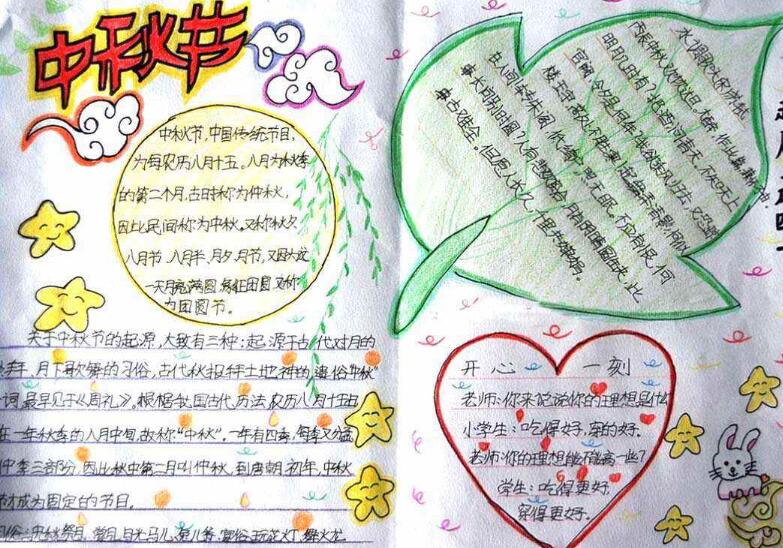 中秋节
中秋节，中国传统节日，
为每农历八月十五。八月为秋季
的第二个月，古时称为仲秋，
因此民间称为中秋。又称秋夕
八月节、八月半、月夕、月节，又因这
一天月亮满圆，象征团圆，又称
为团圆节。
关于中秋节的起源，大致有三种：起源于古代对月的
月下歌舞的习俗，古代秋报拜土地神的遗俗"中秋"
一词，最早见于《周礼》。根据我国古代历法，农历八月十五日
在一年秋季的八月中旬，故称"中秋"。一年有四季，每季又分孟
仲季三部分，因此秋中第二月叫仲秋，到唐朝初年，中秋
才成为固定的节日。
中秋祭月
水调歌头
丙辰中秋，欢饮达旦，大醉，作此篇，
明月几时有？把酒问青天。不知天上
宫阙，今夕是何年？我欲乘风归去，又恐琼
楼玉宇，高处不胜寒，起舞弄清影，何似
在人间！转朱阁，低绮户，照无眠。不应有恨，何
事长向别时圆？人有悲欢离合，月有阴晴圆缺，此
事古难全。但愿人长久，千里共婵娟。
开心一刻
老师：你来说说你的理想是什
小学生：吃得好，穿的好。
老师：你的理想能不能高一些？
学生：吃得更好，
穿得更好。